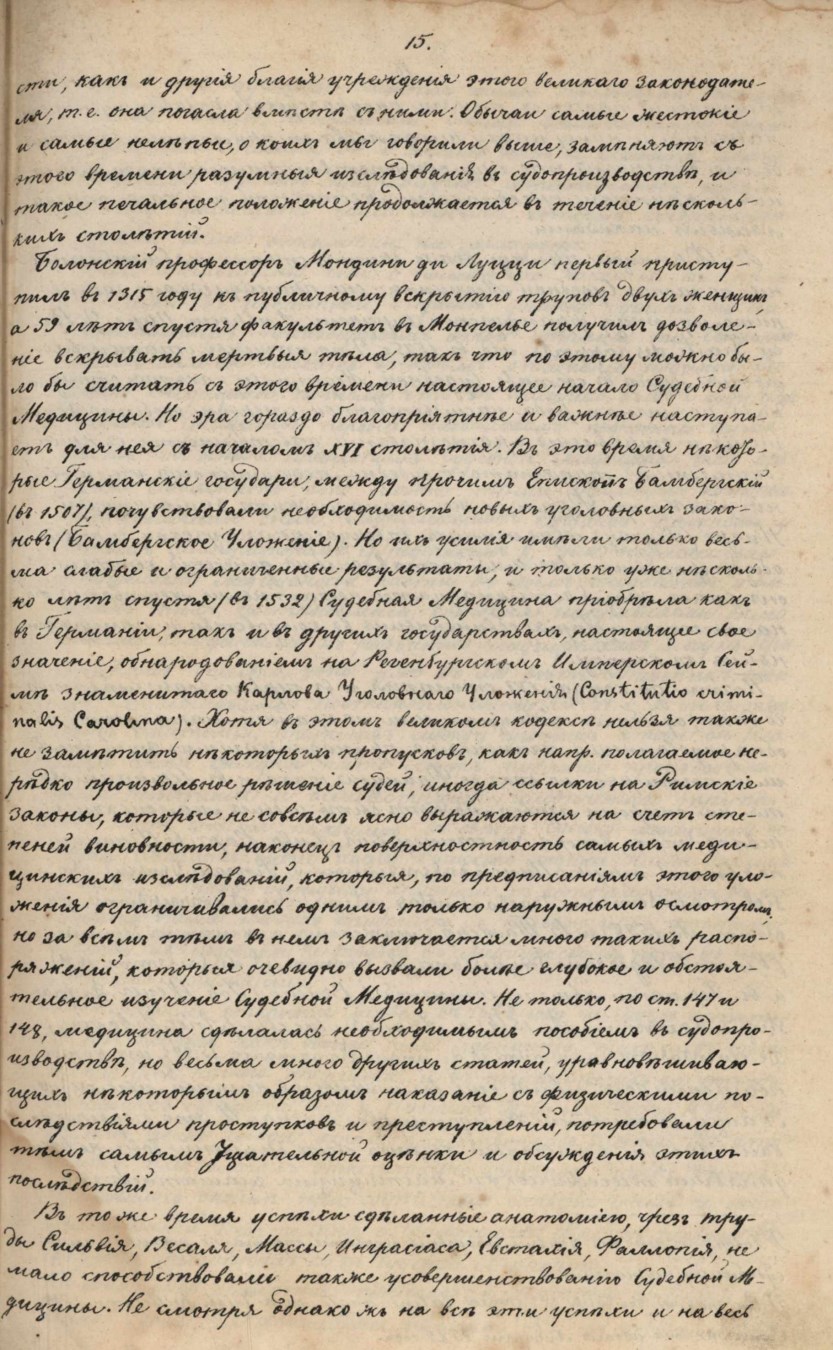 15.
сти, какъ и другія благія учрежденія этого великаго законодате-
ля, т. е. она погасла вмѣстѣ съ ними. Обычаи самые жестокіе
и самые нелѣпые, о коихъ мы говорили выше, замѣняютъ съ
этого времени разумныя изслѣдованія въ судопроизводствѣ, и
такое печальное положеніе продолжается въ теченіе нѣсколь-
кихъ столѣтій.
Болонскій профессоръ Мондини ди Луцци первый присту-
пилъ въ 1315 году къ публичному вскрытію труповъ двухъ женщинъ,
а 59 лѣтъ спустя факультетъ въ Монпелье получилъ дозволе-
ніе вскрывать мертвыя тѣла, такъ что по этому можно бы-
ло бы считать съ этого времени настоящее начало Судебной
Медицины. Но эра гораздо благопріятнѣе и важнѣе наступа-
етъ для нея съ началомъ XVI столѣтія. Въ это время нѣкото-
рые Германскіе государи, между прочимъ Епископъ Бамбергскій
(въ 1507), почувствовали необходимость новыхъ уголовныхъ зако-
новъ (Бамбергское Уложеніе). Но ихъ усилія имѣли только весь-
ма слабые и ограниченные результаты, и только уже нѣсколь-
ко лѣтъ спустя (въ 1532) Судебная Медицина пріобрѣла какъ
въ Германіи, такъ и въ другихъ государствахъ, настоящее свое
значеніе, обнародованіемъ на Регенбургскомъ Имперскомъ Сей-
мѣ знаменитаго Карлова Уголовнаго Уложенія (Constitutio crimi-
nalis Carolina). Хотя въ этомъ великомъ кодексѣ нельзя также
не замѣтить нѣкоторыхъ пропусковъ, какъ напр. полагаемое не-
рѣдко произвольное рѣшеніе судей, иногда ссылки на Римскіе
законы, которые не совсѣмъ ясно выражаются на счетъ сте-
пеней виновности, наконецъ поверхностность самыхъ меди-
цинскихъ изслѣдованій, которыя, по предписаніямъ этого уло-
женія ограничивались однимъ только наружнымъ осмотромъ,
но за всѣмъ тѣмъ въ немъ заключается много такихъ распо-
ряженій, которыя очевидно вызвали болѣе глубокое и обстоя-
тельное изученіе Судебной Медицины. Не только, по ст. 147 и
148, медицина сдѣлалась необходимымъ пособіемъ въ судопро-
изводствѣ, но весьма много другихъ статей, уравновѣшиваю-
щихъ нѣкоторымъ образомъ наказаніе съ физическими по-
слѣдствіями проступковъ и преступленій, потребовали
тѣмъ самымъ тщательной оцѣнки и обсужденія этихъ
послѣдствій.
Въ тоже время успѣхи сдѣланные анатоміею, чрезъ тру-
ды Сильвія, Везаля, Массы, Инграсіаса, Евстахія, Фаллопія, не
мало способствовали также усовершенствованію Судебной Ме-
дицины. Не смотря однако жъ на всѣ эти успѣхи и на весь